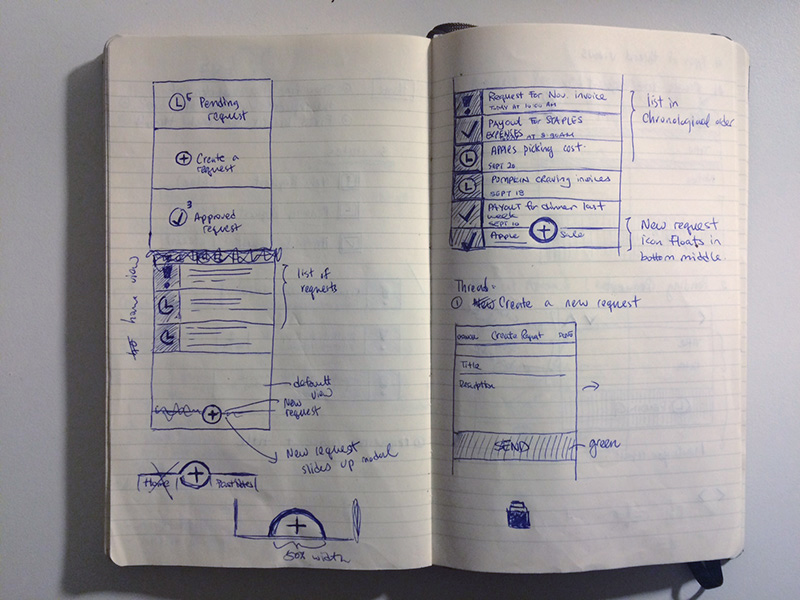 5
Pending
request
+ Create a
request
3
Approved
request
home view
list of
requests
default
New view
request
+
New request
slides up modal
Home
+
+
50% width
Request for Nov. invoice
TODAY AT 10:50 AM
PAYOUT FOR STAPLES
EXPENSES AT 8:30AM
APPLES picking cost
SEPT 20
PUMPKIN craving invoices
SEPT 18
PAYOUT for dinner last
week
SEPT 10
Apple + Sale
list in
chronological order
New request
icon floats in
bottom middle.
Thread:
1 New Create a new request
CANCEL Create Request DONE
Title
Description
SEND
green